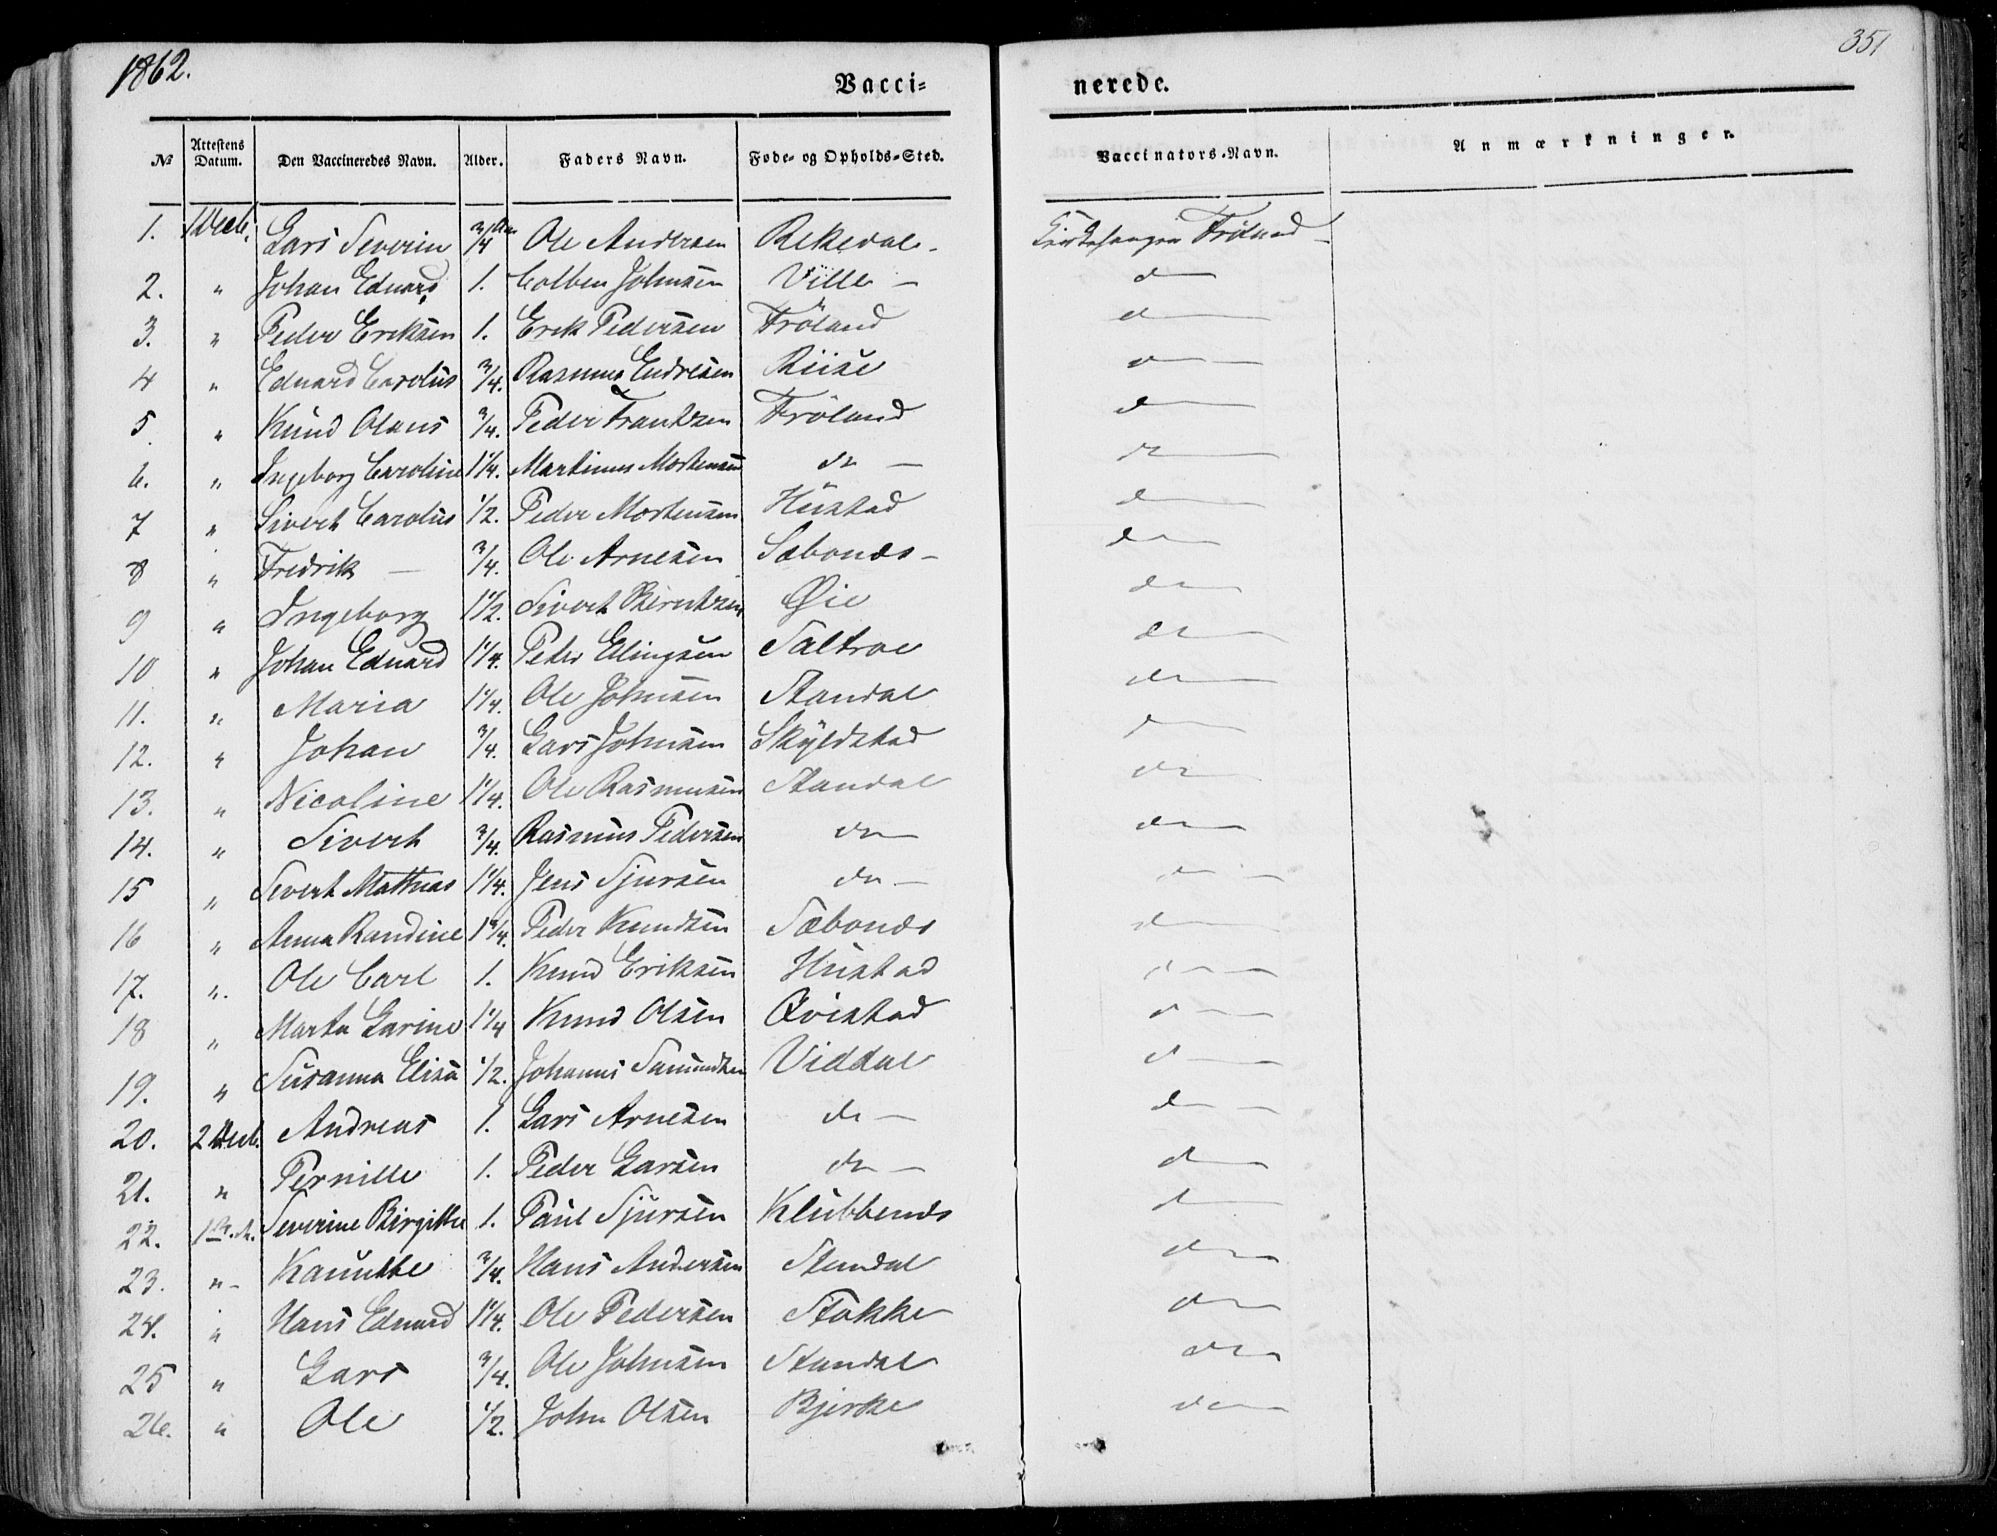 1862.
351
Vacci- nerede.
№ Attestens Datum. Den Vaccineredes Navn. Alder. Faders Navn. Føde- og Opholds-Sted. Vaccinators-Navn. Anmærkninger.
1. 1 Decb. Lars Severin 3/4 Ole Andersen Rekedal - Kirkesanger Fröland -
2. " Johan Eduard 1. Colben Johnsen Ville - do
3. " Peder Eriksen 1. Erik Pedersen Fröland do
4 " Eduard Carolus 3/4. Rasmus Endresen Riise do
5 " Knud Olaus 3/4. Peder Frantzen Fröland do
6. " Ingeborg Caroline 1 1/4. Martinus Mortensen do - do
7 " Sivert Carolus 1/2. Peder Mortensen Hustad do
8 " Fredrik - 3/4. Ole Arnesen Sæbonæs - do
9 " Ingeborg 1 1/2. Sivert Berntzen Øie do
10 " Johan Eduard 1 1/4. Peder Elingsen Saltroe do
11. " Maria 1 1/4. Ole Johnsen Standal do
12. " Johan 3/4. Lars Johnsen Skyldstad do
13. " Nicoline 1 1/4. Ole Rasmusen Standal do
14. " Sivert 3/4. Rasmus Pedersen do do
15 " Sivert Mathias 1 1/4. Jens Sjursen do - do
16 " Anna Randine 1 3/4. Peder Knudsen Sæbonæs do
17. " Ole Carl 1. Knud Eriksen Hustad do
18 " Marta Larine 1 1/4 Knud Olsen Qvistad do
19. " Susanna Elisa 1/2. Johannes Viddal do
20. 2 Decb. Andreas 1. Lars Arnesen do - do
21. " Pernille 1. Peder Larsen do - do
22. Severine Birgitte 1. Paul Sjursen Klubbenæs do
23. " - Kanutte 3/4. Hans Andersen Standal do
24. " Hans Eduard 1 1/4. Ole Pedersen Stokke do
25 " Lars 3/4. Ole Johnsen Standal do
26. " Ole 1/2. John Olsen Bjerke do